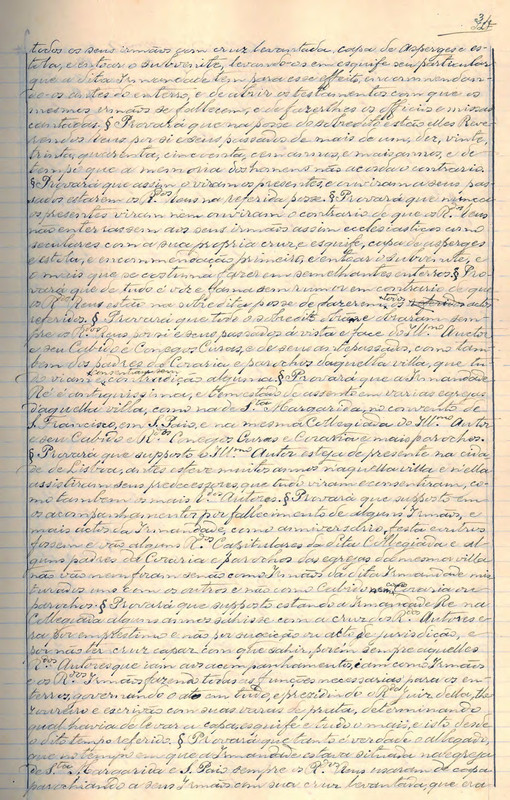 34
todos os seus irmãos com cruz levantada, capa de asperges e es-
tola, e entoar o subvenite, levando-os em esquife seu particular
que a dita Irmandade tem para esse effeito, encommendan-
do-os antes do enterro, e de abrir os testamentos com que os
mesmos irmãos se fallecem, e de fazer-lhes os officios e missas
cantadas. § Provará que na posse do sobredito estão elles Reve-
rendos Reus por si e seus passados de mais de um, dez, vinte,
trinta, quarenta, cincoenta, cem annos, e mais annos, e de
tempo que a memoria dos homens não accorda o contrario.
§ Provará que assim o viram os presentes, e ouviram a seus pas-
sados estarem os R.dos Reus na referida posse. § Provará que nunca
os presentes viram nem ouviram o contrario de que os R.dos Reus
não enterrassem aos seus irmãos assim ecclesiasticos como
seculares com a sua propria cruz e esquife, capa de asperges
e estola, e encommendação primeiro, e entoar o subvenite, e
o mais que se costuma fazer em semelhantes enterros. § Pro-
vará que de tudo é voz e fama sem rumor em contrario de que
os R.dos Reus estão na sobredita posse de fazerem os todos actos
referidos. § Provará que todo o sobredito obram e obraram sem-
pre os R.dos Reus por si e seus passados á vista e face do Ill.mo Auctor
e seu Cabido e Conegos Curas, e de seus antepassados, como tam-
bem dos padres da Coraria e parochos daquella villa, que tu-
do viam e consentiam sem contradição alguma. § Provará que a Irmandade
Ré é antiquissima, e tem estado de assento em varias egrejas
daquella villa, como na de S.ta Margarida, no convento de
S. Francisco, em S. Paio, e na mesma Collegiada do Ill.mo Autor
e seu Cabido e R.dos Conegos Curas e Coraria e mais parochos.
§ Provará que supposto o Ill.mo Autor esteja de presente na cida-
de de Lisboa, antes esteve muitos annos naquella villa e n'ella
assistiram seus predecessores, que tudo viram e consentiram, co-
mo tambem os mais R.dos Autores. § Provará que supposto em
os acompanhamentos por fallecimento de alguns Irmãos, e
mais actos da Irmandade, como anniversario, festa e outros
fossem e vão alguns R.dos Capitulares da dita Collegiada e al-
guns padres da Coraria e parochos das egrejas da mesma villa
não vão nem foram senão como Irmãos da dita Irmandade mis-
turados uns com os outros e não como Cabido nem Coraria ou
parochos. § Provará que supposto estando a Irmandade Ré na
Collegiada alguns annos sahisse com a cruz os R.dos Autores e
pa foi emprestimo e não por sujeição ou acto de jurisdicção, e
por não ter cruz capaz com que sahir, porém sempre aquelles
R.dos Autores que iam aos acompanhamentos, eram como Irmãos
e os R.dos Irmãos fazendo todas as funcções necessarias para os en-
terros, governando o em tudo, e presidindo o R.do Juiz della, the-
zoureiro e escrivão com suas varas de prata, determinando
qual havia de levar a capa, esquife e tudo o mais, e isto desde
o dito tempo referido. § Provará que tanto é verdade o allegado,
que no tempo em que a Irmandade estava situada na egreja
de S.ta Margarida e S. Paio sempre os R.dos Reus usaram de capa
parochiando a seus Irmãos com a sua cruz levantada, que era